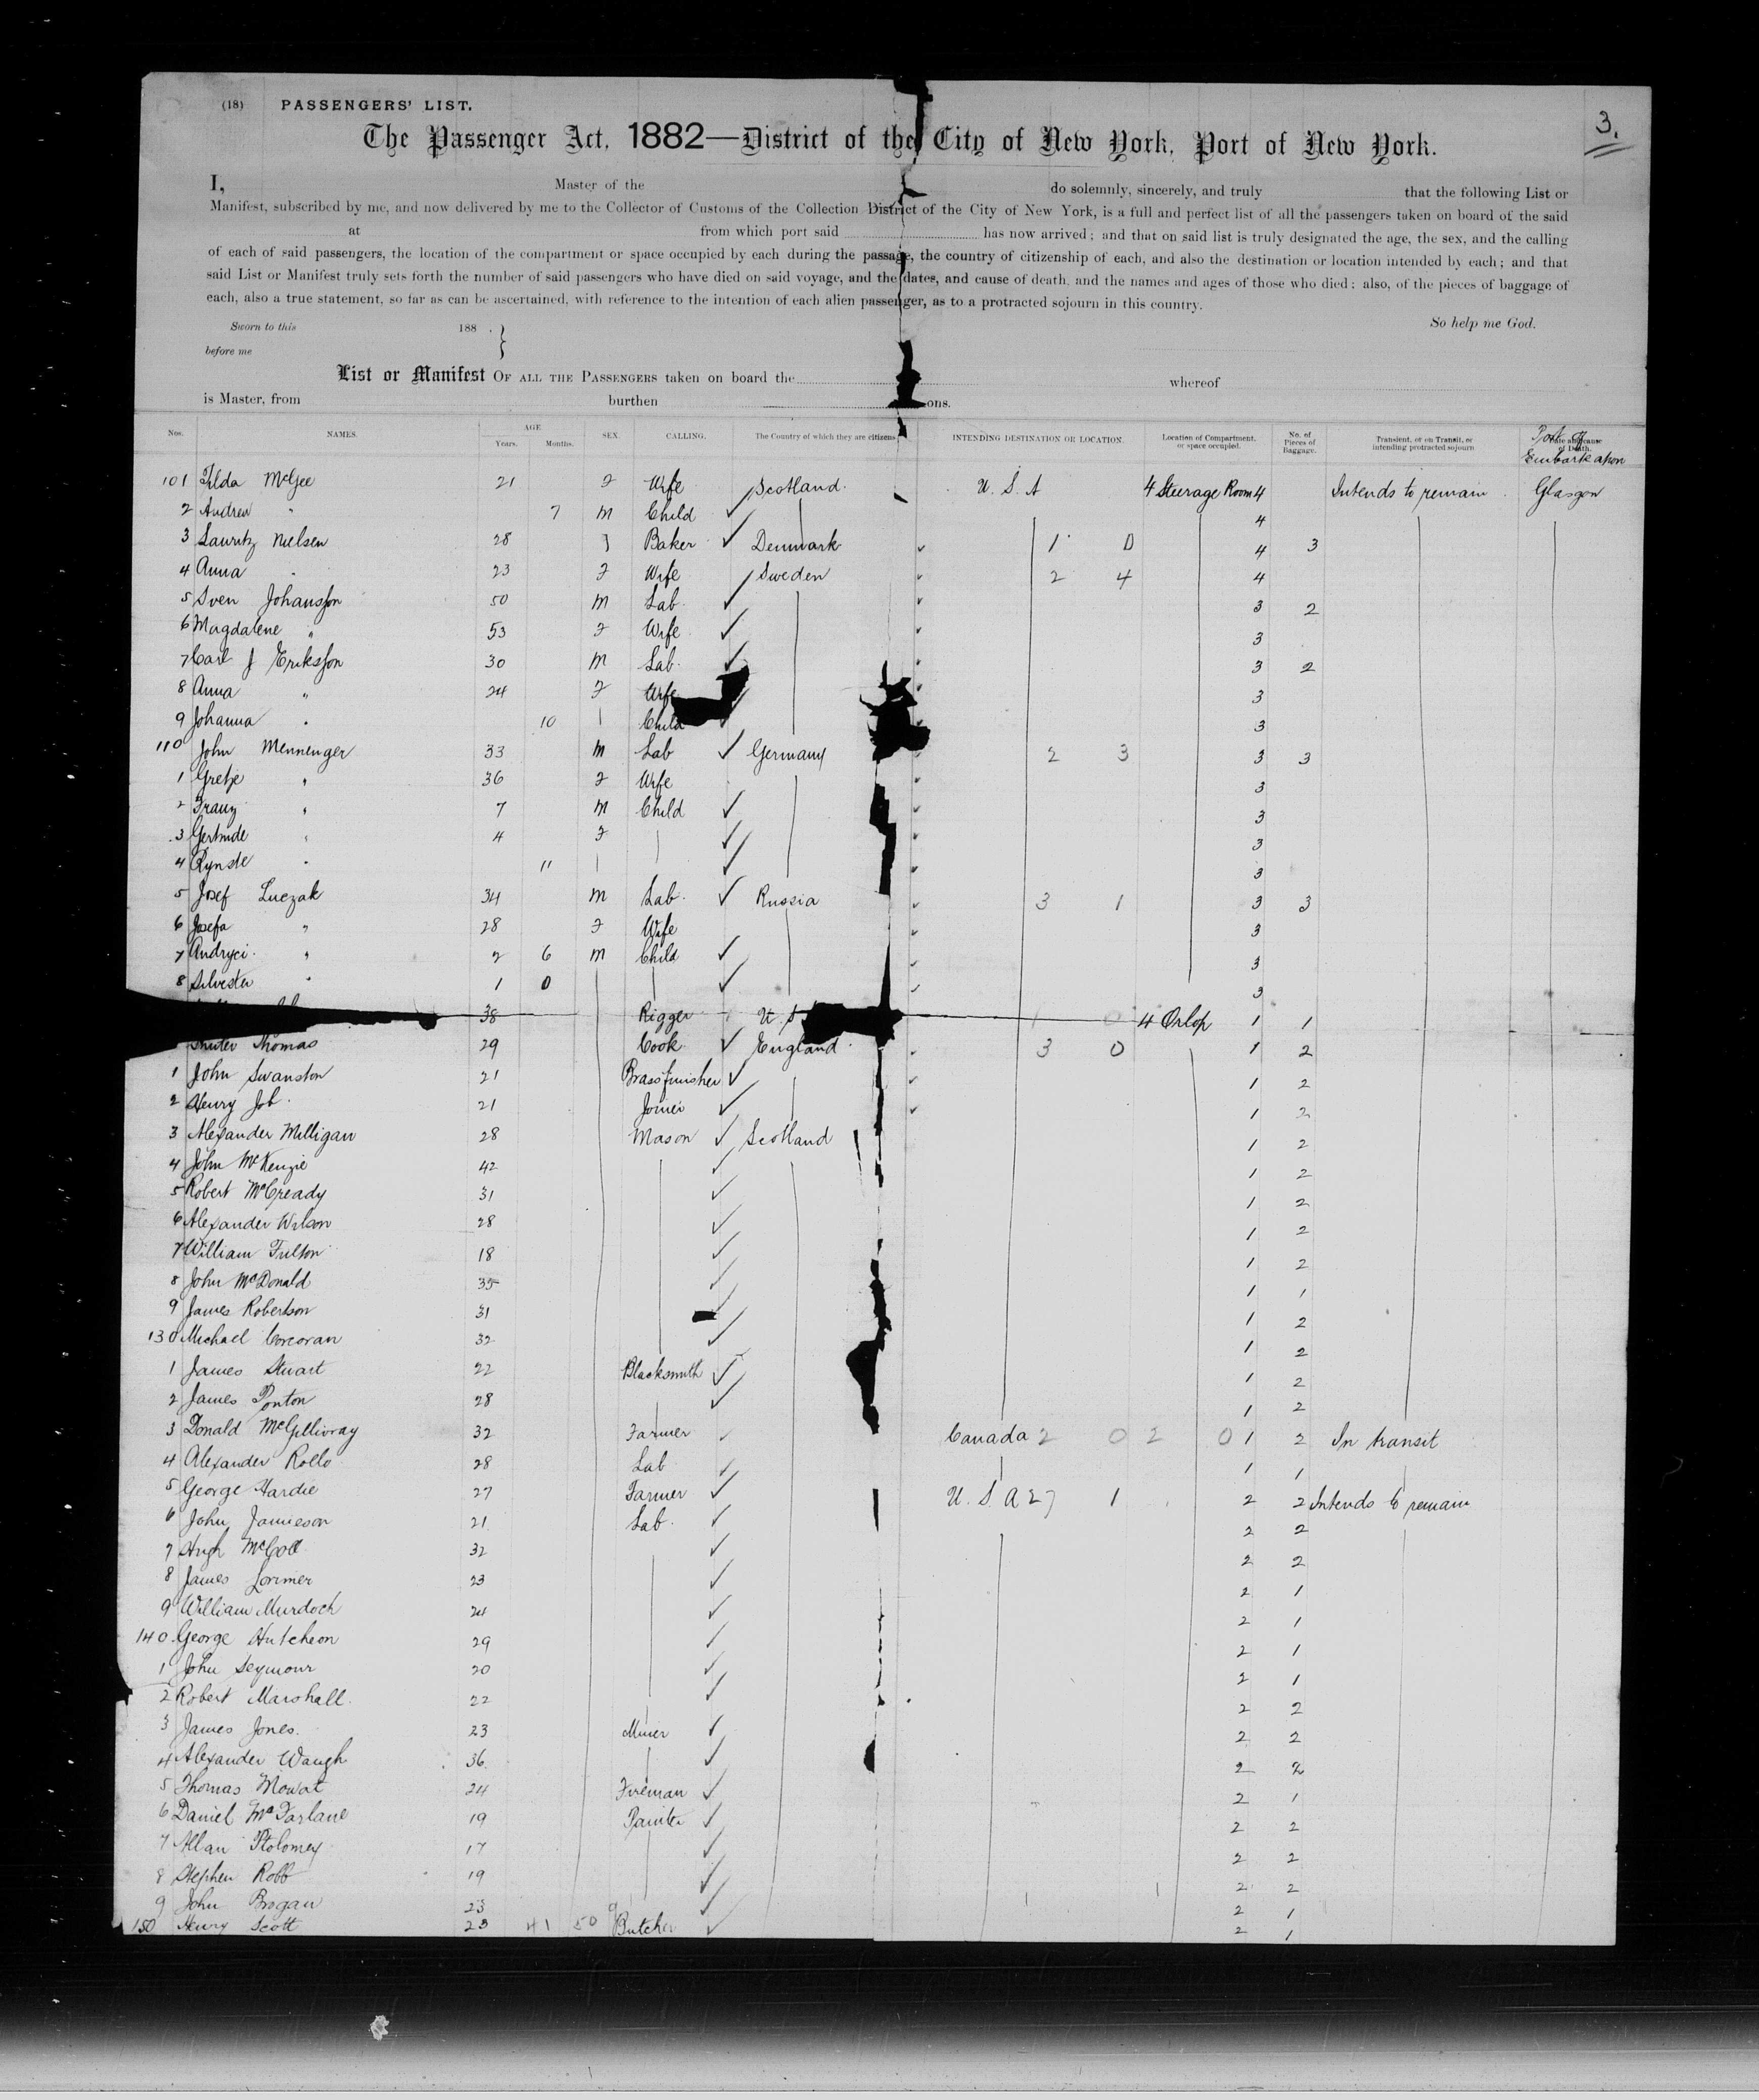 (18) PASSENGERS' LIST.
3.
The Passenger Act, 1882—District of the City of New York, Port of New York.
I, Master of the do solemnly, sincerely, and truly that the following List or
Manifest, subscribed by me, and now delivered by me to the Collector of Customs of the Collection District of the City of New York, is a full and perfect list of all the passengers taken on board of the said
at from which port said has now arrived; and that on said list is truly designated the age, the sex, and the calling
of each of said passengers, the location of the compartment or space occupied by each during the passage, the country of citizenship of each, and also the destination or location intended by each; and that
said List or Manifest truly sets forth the number of said passengers who have died on said voyage, and the dates, and cause of death, and the names and ages of those who died; also, of the pieces of baggage of
each, also a true statement, so far as can be ascertained, with reference to the intention of each alien passenger, as to a protracted sojourn in this country.
Sworn to this 188 . So help me God.
before me
List or Manifest OF ALL THE PASSENGERS taken on board the whereof
is Master, from burthen ons.
Nos. NAMES. AGE Years. Months. SEX. CALLING. The Country of which they are citizens. INTENDING DESTINATION OR LOCATION. Location of Compartment, or space occupied. No. of Pieces of Baggage. Transient, or on Transit, or intending protracted sojourn Port of Embarkation
101 Tilda McGee 21 F Wife Scotland U.S.A 4 Steerage Room 4 Intends to remain Glasgow
2 Andrew " 7 M Child 4
3 Lauritz Nielsen 28 Baker Denmark 1 0 4 3
4 Anna " 23 F Wife Sweden 2 4 4
5 Sven Johansson 50 M Lab 3 2
6 Magdalene " 53 F Wife 3
7 Carl J Eriksson 30 M Lab 3 2
8 Anna " 24 F Wife 3
9 Johanna " 10 Child 3
110 John Mennenger 33 M Lab Germany 2 3 3 3
1 Gretje " 36 F Wife 3
2 Franz " 7 M Child 3
3 Gertrude " 4 F 3
4 " 11 3
5 Josef Luczak 34 M Lab Russia 3 1 3 3
6 Josefa " 28 F Wife 3
7 Andryci " 2 6 M Child 3
8 Silvester " 1 0 3
38 Rigger U.S 4 Orlop 1 1
Thomas 29 Cook England 3 0 1 2
1 John Swanston 21 Brassfinisher 1 2
2 Henry Job 21 Joiner 1 2
3 Alexander Milligan 28 Mason Scotland 1 2
4 John McKenzie 42 1 2
5 Robert McCready 31 1 2
6 Alexander Wilson 28 1 2
7 William Fulton 18 1 2
8 John McDonald 35 1 1
9 James Robertson 31 1 2
130 Michael Corcoran 32 1 2
1 James Stuart 22 Blacksmith 1 2
2 James Ponton 28 1 2
3 Donald McGillivray 32 Farmer Canada 2 0 2 0 1 2 In transit
4 Alexander Rollo 28 Lab 1 1
5 George Hardie 27 Farmer U.S.A 27 1 2 2 Intends to remain
6 John Jamieson 21 Lab 2 2
7 Hugh McColl 32 2 2
8 James Lorimer 23 2 1
9 William Murdoch 24 2 1
140 George Hutcheon 29 2 1
1 John Seymour 20 2 1
2 Robert Marshall 22 2 2
3 James Jones 23 Miner 2 2
4 Alexander Waugh 36 2 2
5 Thomas Mowat 24 Fireman 2 1
6 Daniel McFarlane 19 Painter 2 2
7 Allan Ptolomey 17 2 2
8 Stephen Robb 19 2 2
9 John Brogan 23 2 1
150 Henry Scott 23 41 50 9 Butcher 2 1